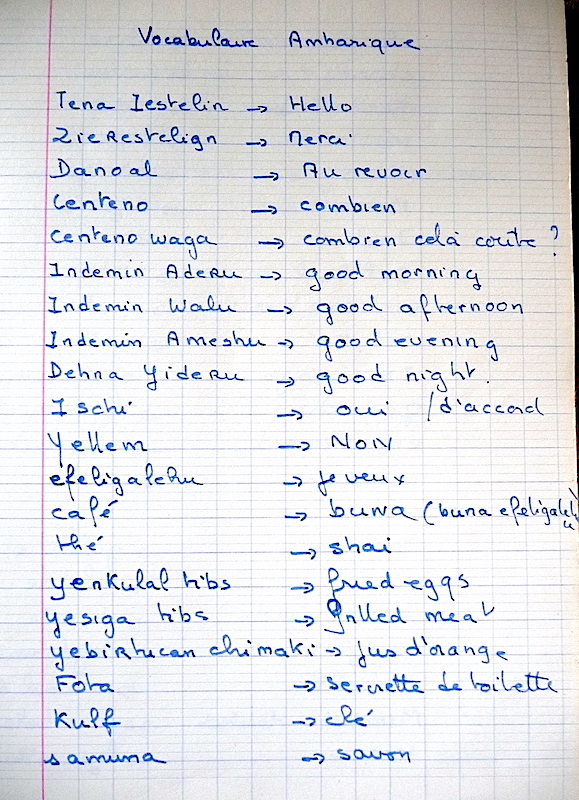 Vocabulaire Amharique
Tena Iestelin → Hello
ZieRestelign → Merci
Danoal → Au revoir
Centeno → combien
Centeno waga → combien celà coûte ?
Indemin Aderu → good morning
Indemin Walu → good afternoon
Indemin Ameshu → good evening
Dehna Yideru → good night.
Ischi → oui / d'accord
Yellem → NON
efeligalehu → je veux
café → buna (buna efeligalehu)
thé → shai
yenkulal tibs → fried eggs
yesiga tibs → grilled meat
yebirtucan chimaki → jus d'orange
Fota → serviette de toilette
Kulf → clé
samuna → savon